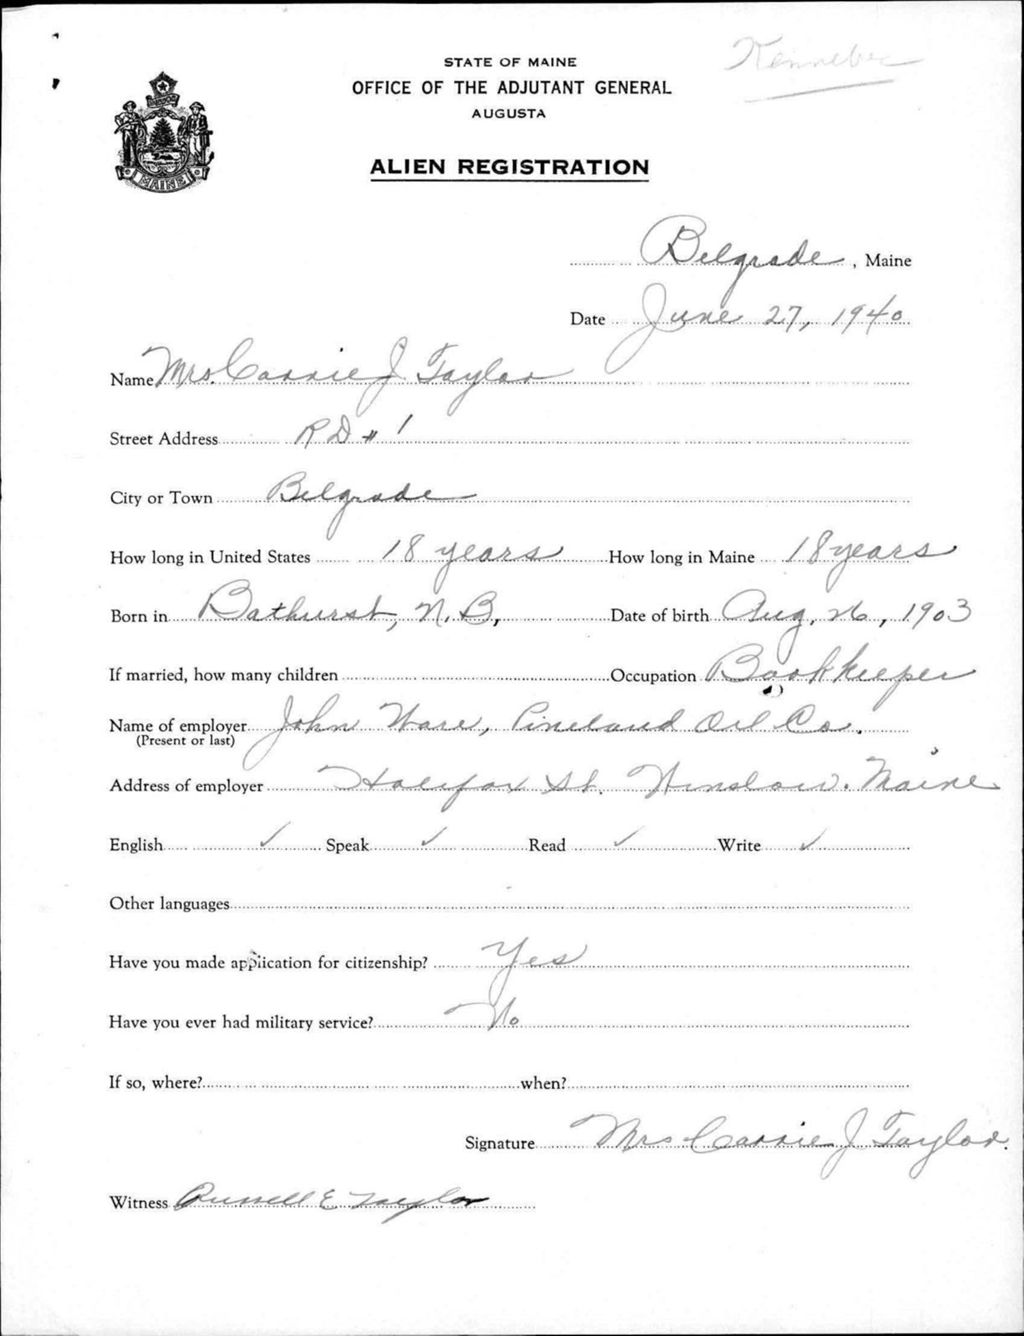 Kennebec
STATE OF MAINE
OFFICE OF THE ADJUTANT GENERAL
AUGUSTA
ALIEN REGISTRATION
MAINE
Belgrade, Maine
Date June 27, 1940
Name Mrs. Carrie J Taylor
Street Address R D # 1
City or Town Belgrade
How long in United States 18 years How long in Maine 18 years
Born in Bathurst, N.B, Date of birth Aug. 26, 1903
If married, how many children Occupation Bookkeeper
Name of employer John Ware, Pineland Oil Co.
(Present or last)
Address of employer Halifax St. Winslow. Maine
English ✓ Speak ✓ Read ✓ Write ✓
Other languages
Have you made application for citizenship? Yes
Have you ever had military service? No
If so, where? when?
Signature Mrs Carrie J Taylor.
Witness Russell E Taylor